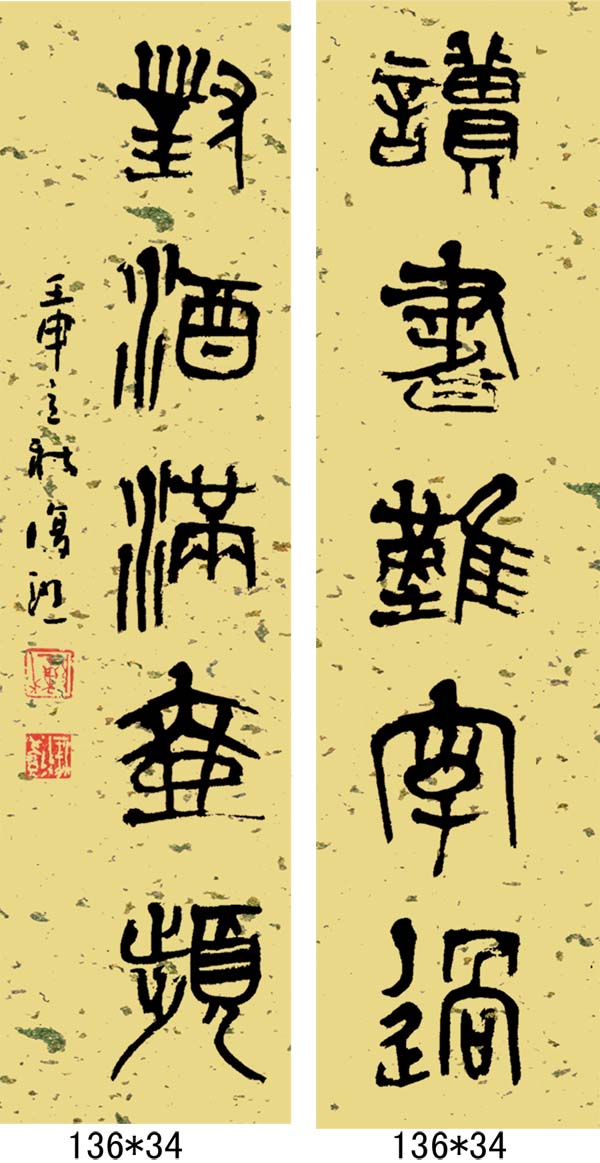 讀書難字過
對酒滿壺頻
壬申立秋
136*34
136*34